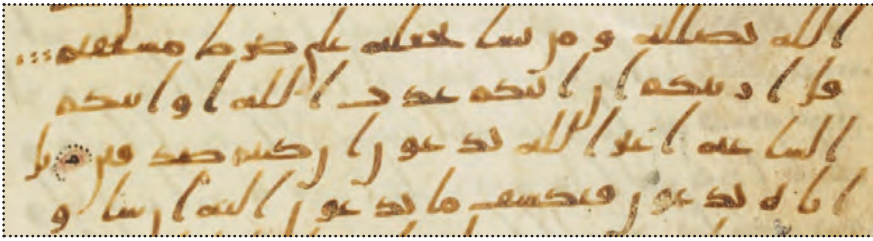 الله يضلله و من يشا يجعله على صرط مستقيم
قل ارىتكم ان اتىكم عذب الله او اتتكم
الساعه اغير الله تدعون ان كنتم صدقين بل
اياه تدعون فيكشف ما تدعون اليه ان شا و